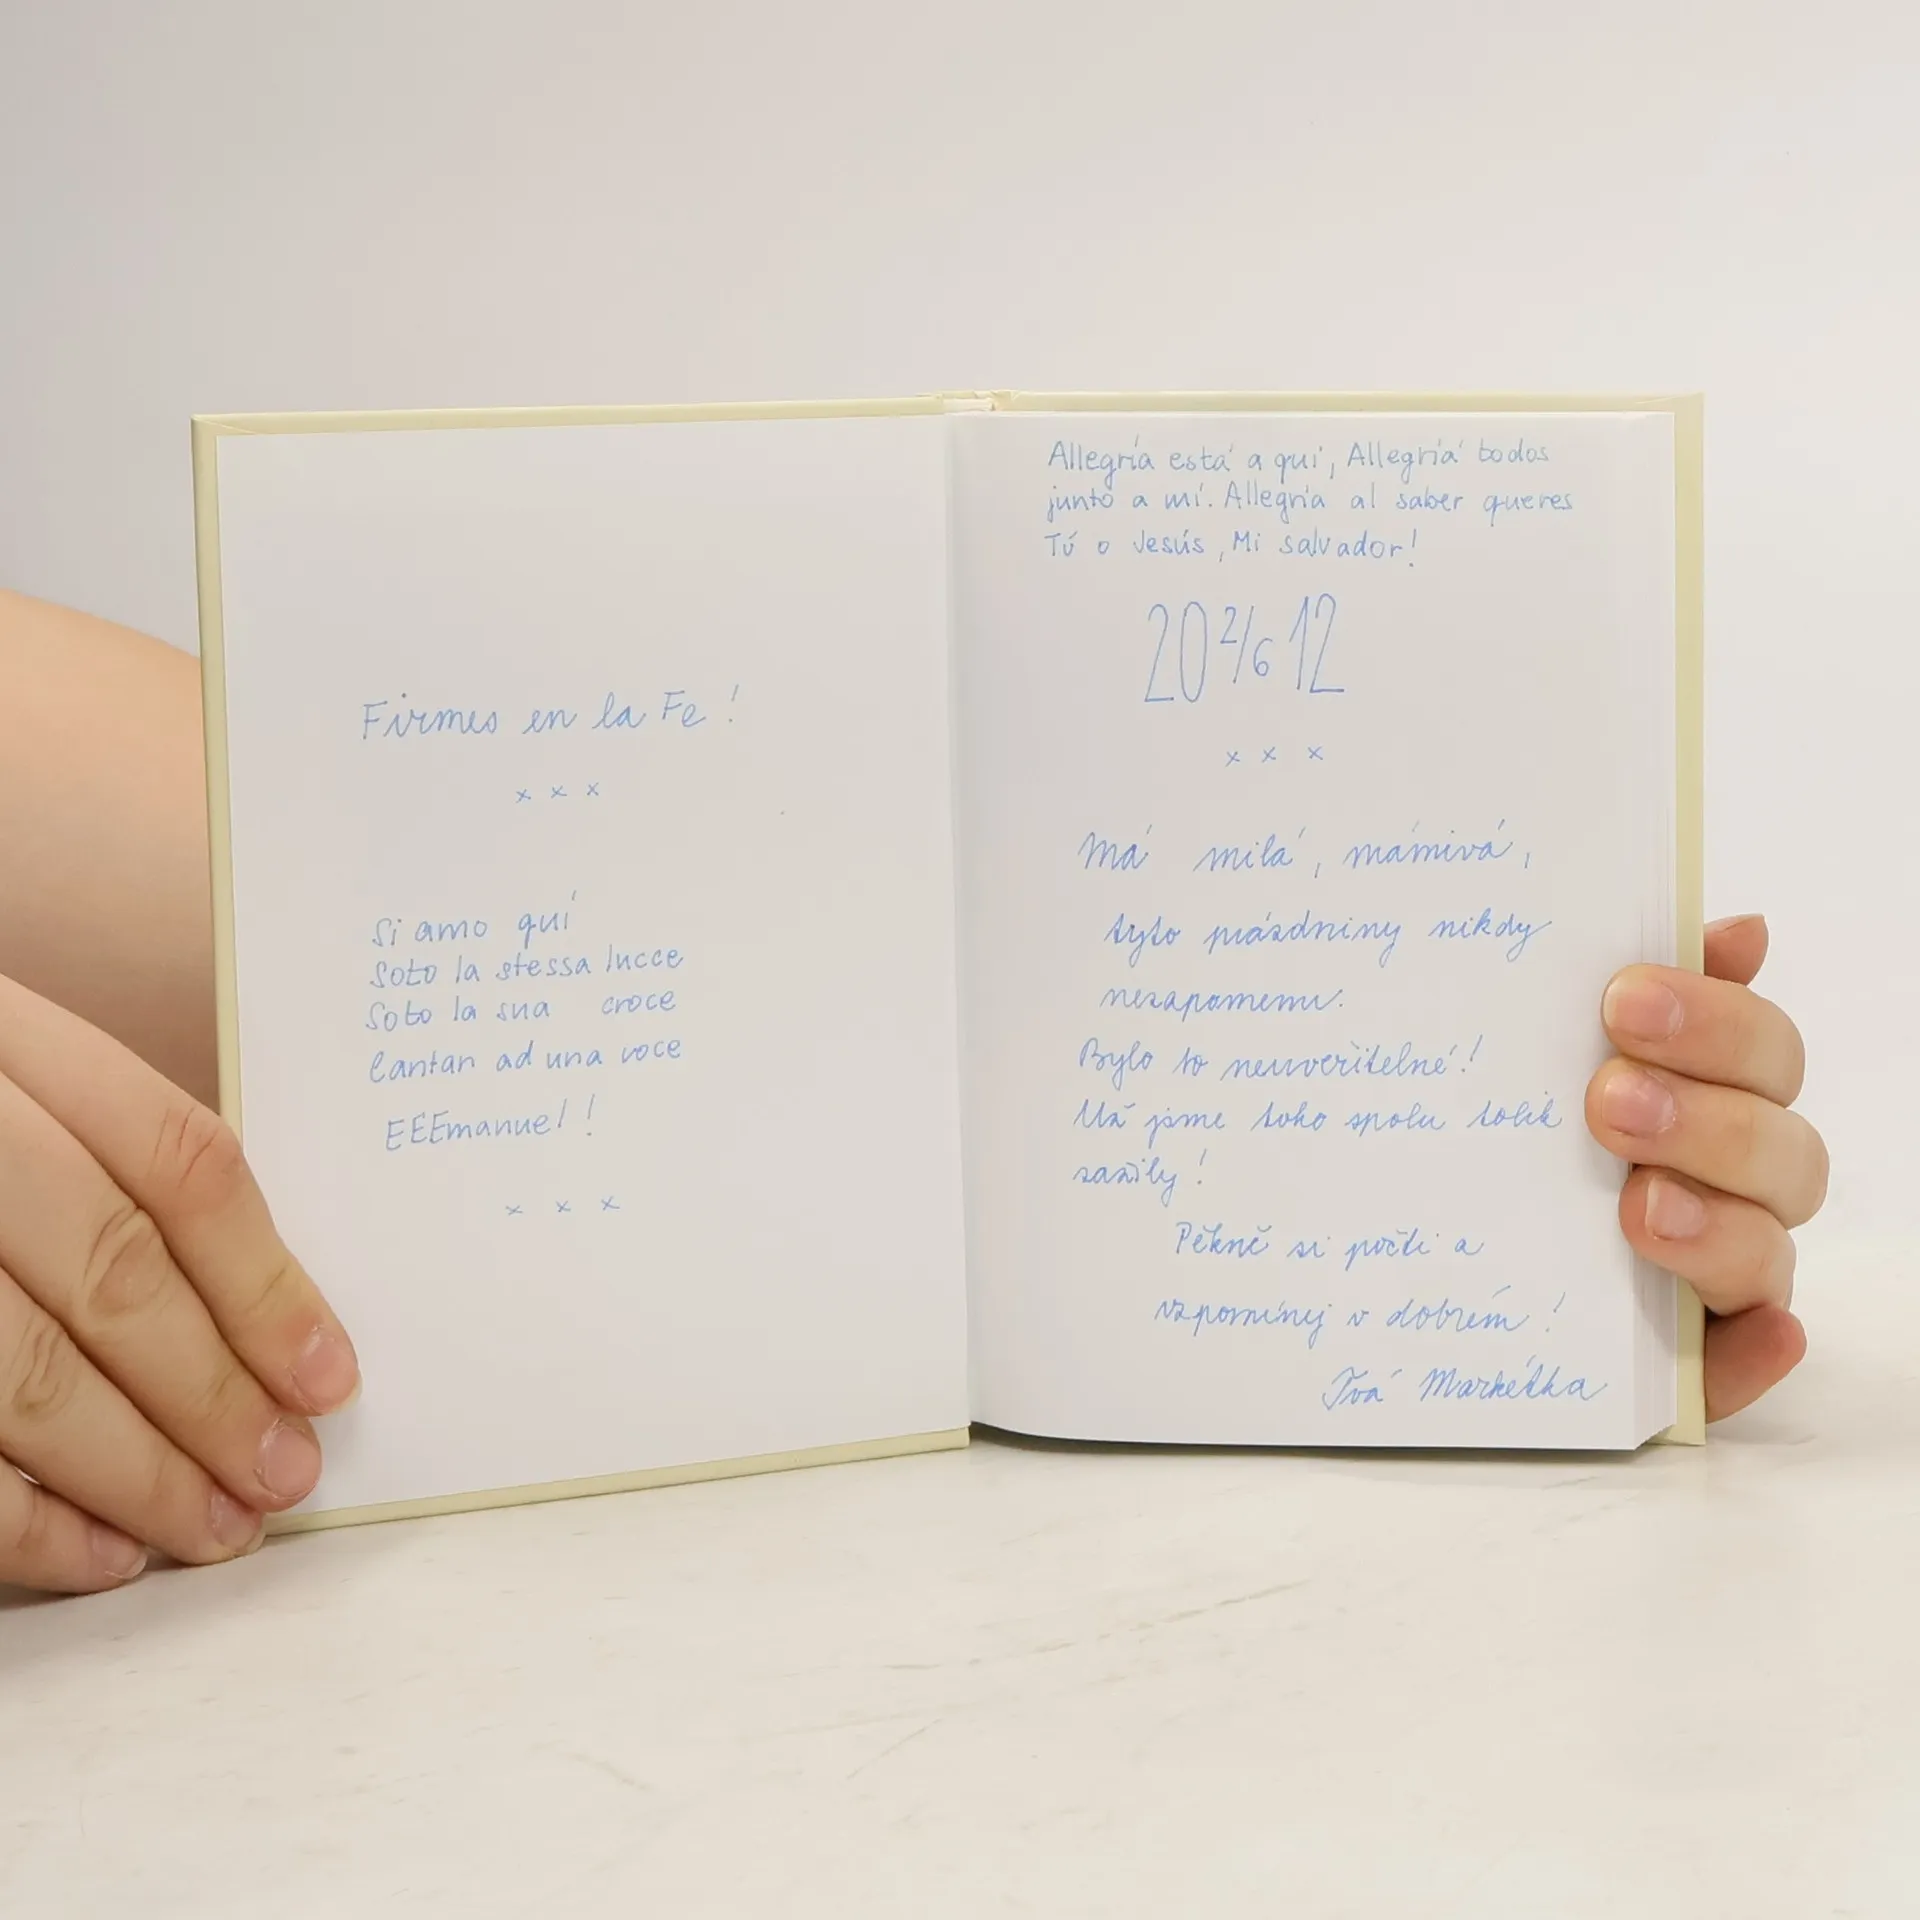 Firmes en la Fe!
x x x
Siamo quí
Soto la stessa lucce
Soto la sua croce
Cantan ad una voce
EEEmanuel!
x x x
Allegría está a quí, Allegríá todos
junto a mí. Allegría al saber queres
Tú o Jesús, Mi salvador!
20 2/6 12
x x x
Má milá,
tyto prázdniny nikdy
nezapomenu.
Bylo to neuvěřitelné!
Už jsme toho spolu tolik
zažily!
Pěkně si počti a
vzpomínej v dobrém!
Tvá Markétka